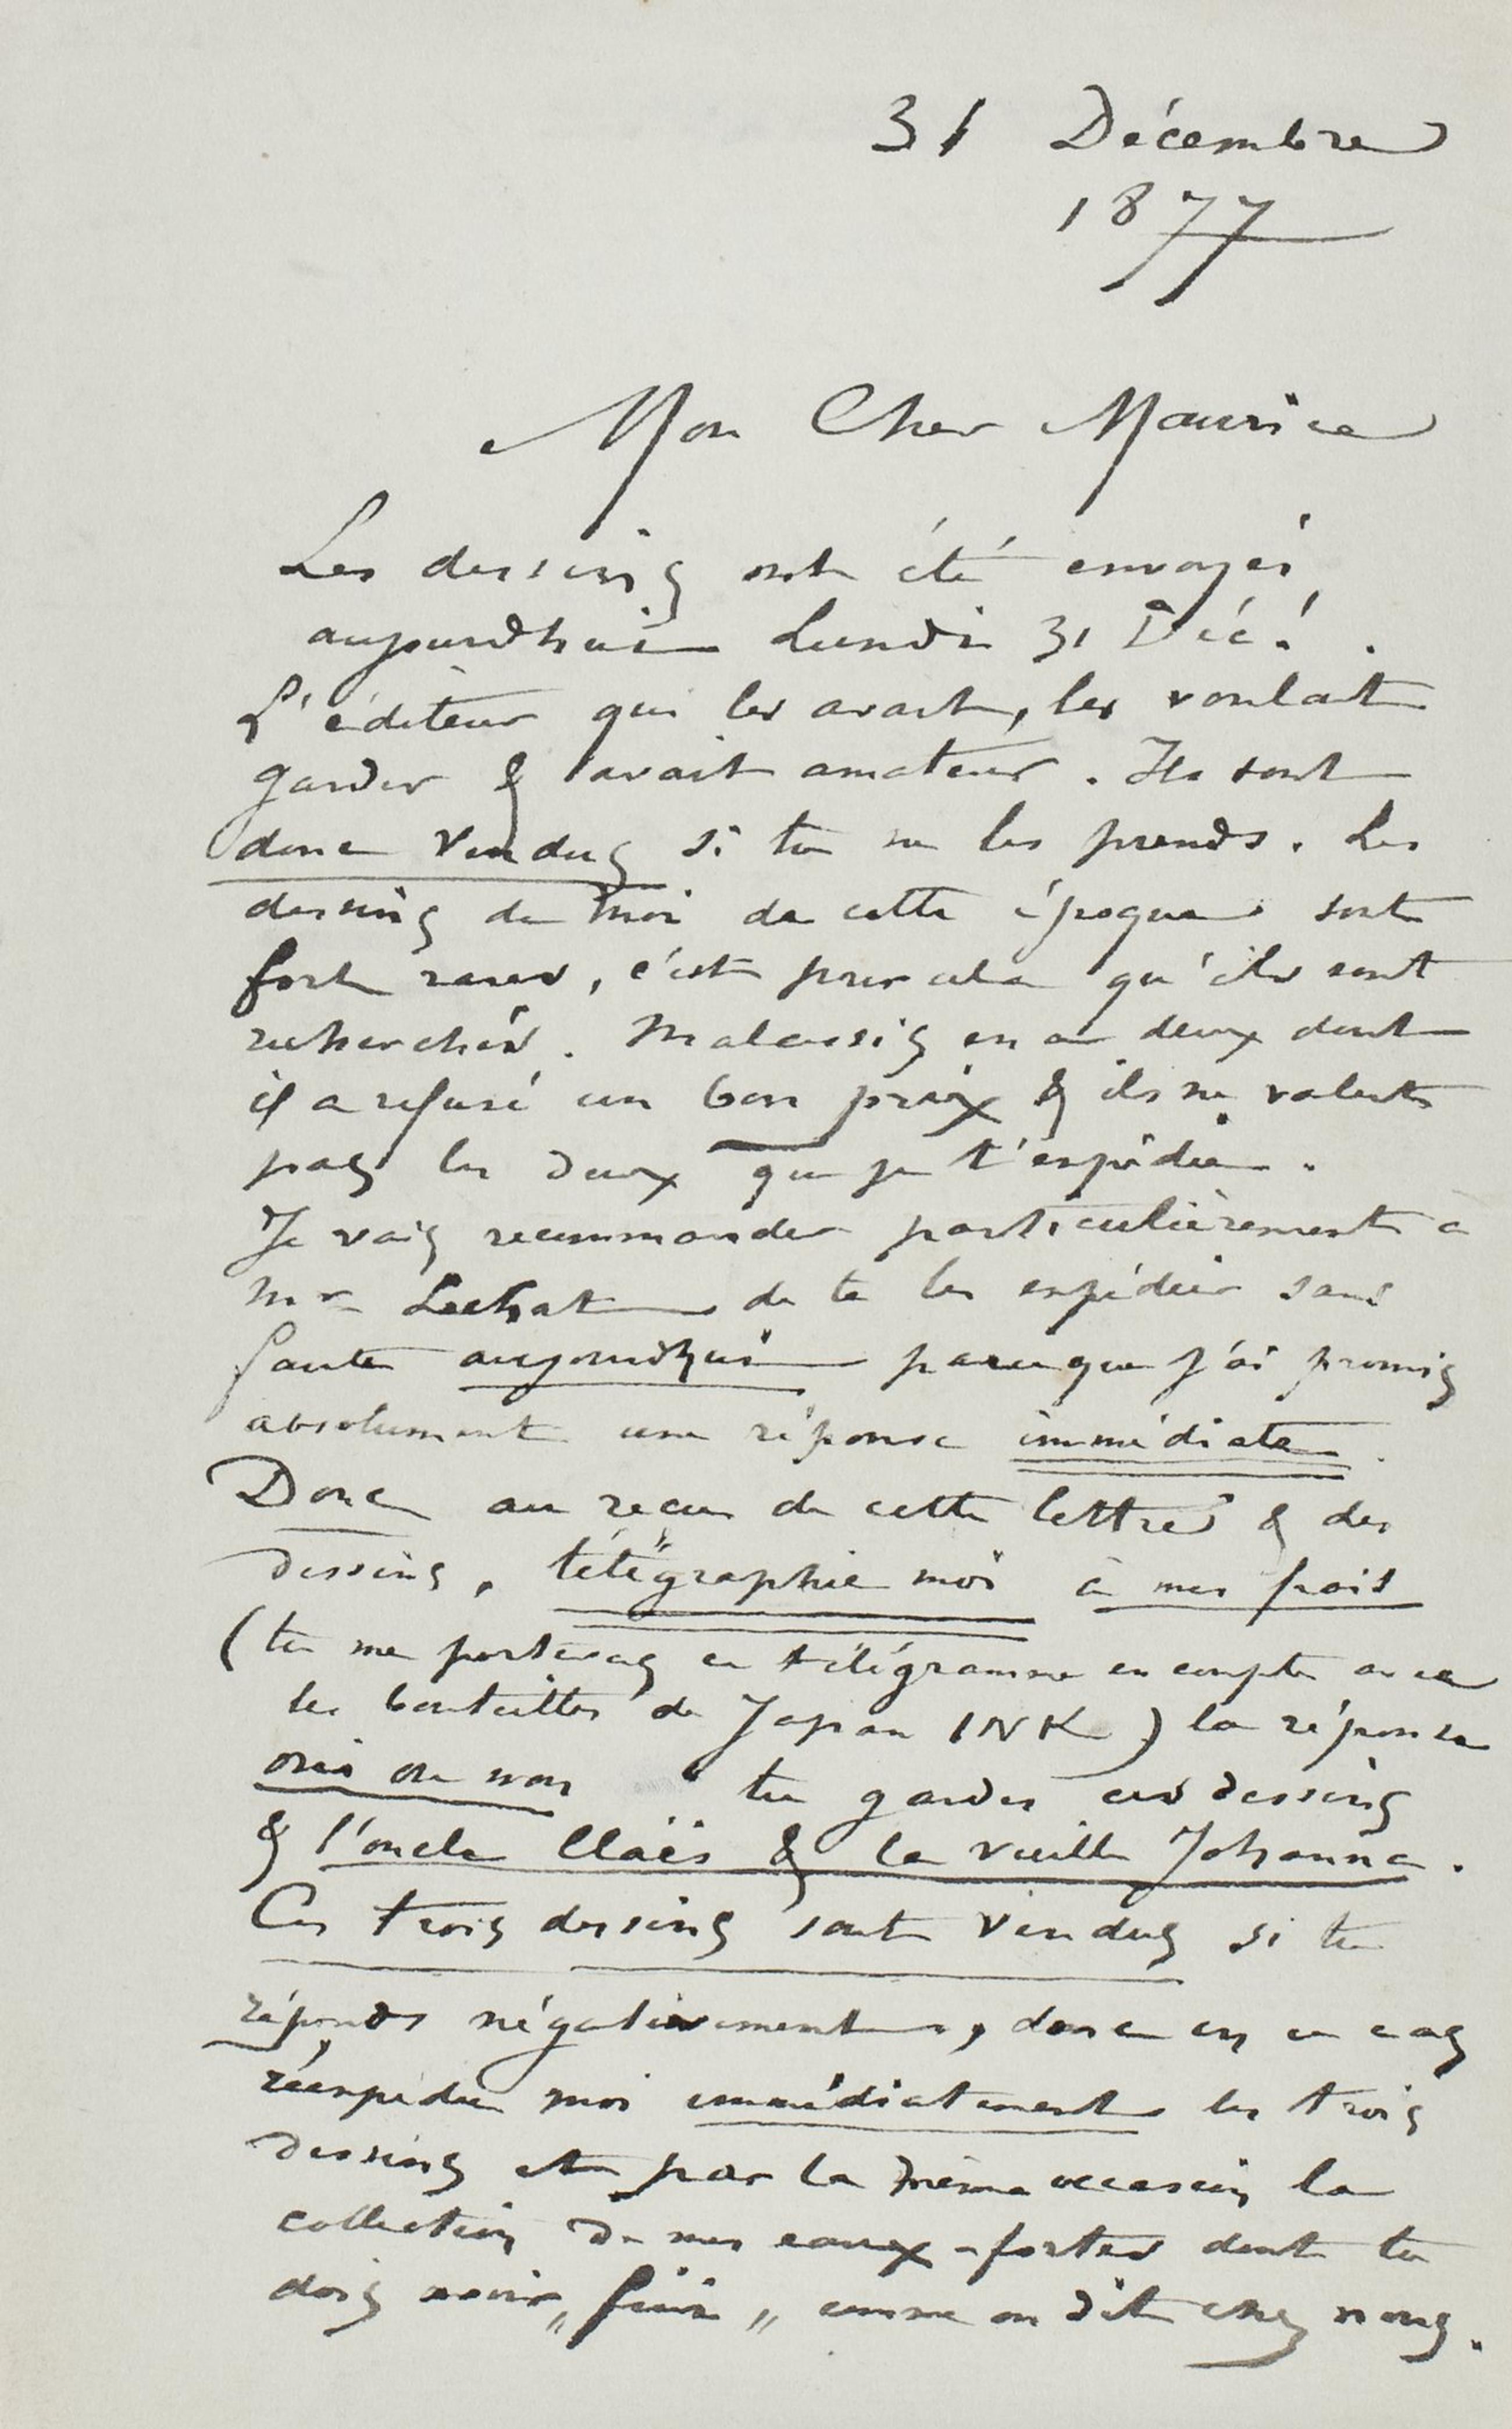 31 Décembre
1877
Mon Cher Maurice
Les dessins ont été envoyés
aujourdhui Lundi 31 Déc! .
L'éditeur qui les avait, les voulait
garder & avait amateur. Ils sont
donc vendus si tu ne les prends. Les
dessins de moi de cette époque sont
fort rares, c'est pour cela qu'ils sont
recherchés. Malassis en a deux dont
il a refusé un bon prix & ils ne valent
pas les deux que je t'expédie.
Je vais recommander particulièrement a
Mr Lechat de te les expédier sans
faute aujourdhui parceque j'ai promis
absolument une réponse immédiate.
Donc au reçu de cette lettre & des
dessins, télégraphie moi à mes frais
(tu me porteras ce télégramme en compte avec
les bouteilles de Japan INK) la réponse
oui ou non tu gardes ces dessins
& l'oncle Claës & la vieille Johanna.
Ces trois dessins sont vendus si tu
réponds négativement, donc en ce cas
réexpédie moi immédiatement les trois
dessins et par la même occasion la
collection de mes eaux-fortes dont tu
dois avoir „ fini „ comme on dit chez nous.